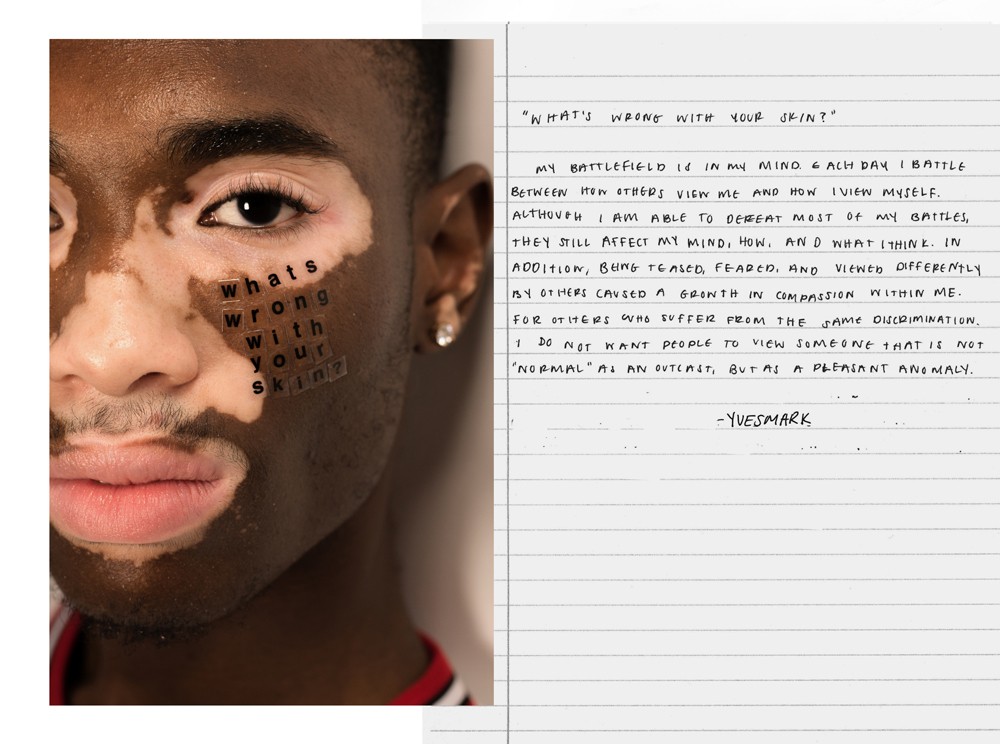 whats
wrong
with
your
skin?
"WHAT'S WRONG WITH YOUR SKIN?"
MY BATTLEFIELD IS IN MY MIND. EACH DAY I BATTLE
BETWEEN HOW OTHERS VIEW ME AND HOW I VIEW MYSELF.
ALTHOUGH I AM ABLE TO DEFEAT MOST OF MY BATTLES,
THEY STILL AFFECT MY MIND, HOW, AND WHAT I THINK. IN
ADDITION, BEING TEASED, FEARED, AND VIEWED DIFFERENTLY
BY OTHERS CAUSED A GROWTH IN COMPASSION WITHIN ME.
FOR OTHERS WHO SUFFER FROM THE SAME DISCRIMINATION.
I DO NOT WANT PEOPLE TO VIEW SOMEONE THAT IS NOT
"NORMAL" AS AN OUTCAST, BUT AS A PLEASANT ANOMALY.
-YVESMARK